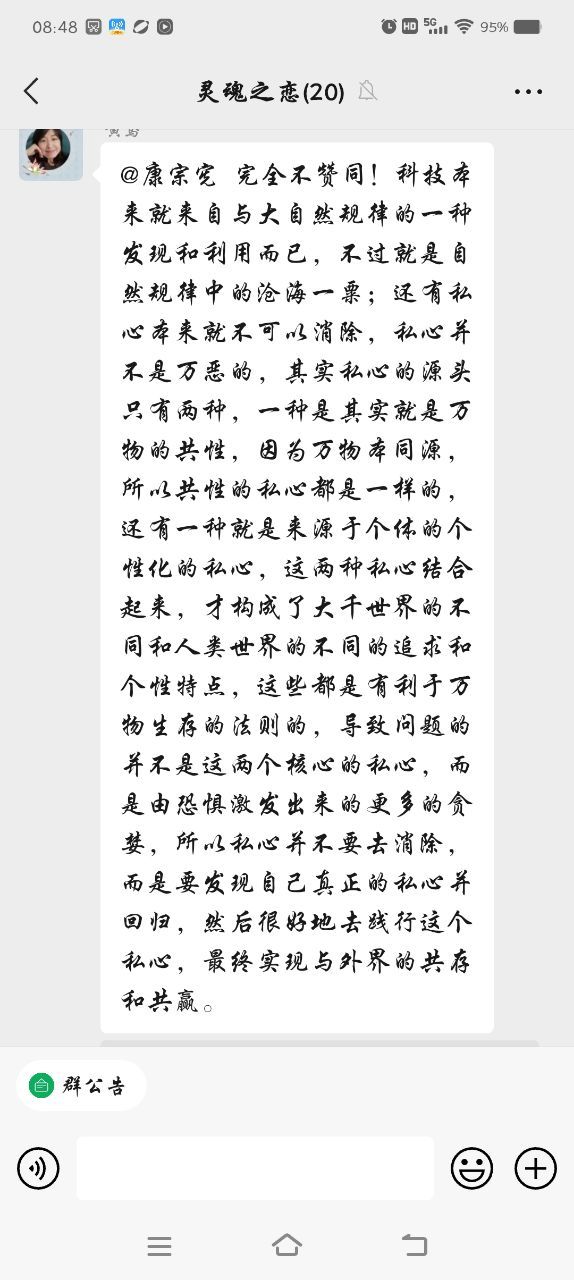 08:48
HD
5G
95%
灵魂之恋(20)
@康宗宪 完全不赞同！科技本
来就来自与大自然规律的一种
发现和利用而已，不过就是自
然规律中的沧海一票；还有私
心本来就不可以消除，私心并
不是万恶的，其实私心的源头
只有两种，一种是其实就是万
物的共性，因为万物本同源，
所以共性的私心都是一样的，
还有一种就是来源于个体的个
性化的私心，这两种私心结合
起来，才构成了大千世界的不
同和人类世界的不同的追求和
个性特点，这些都是有利于万
物生存的法则的，导致问题的
并不是这两个核心的私心，而
是由恐惧激发出来的更多的贪
婪，所以私心并不要去消除，
而是要发现自己真正的私心并
回归，然后很好地去践行这个
私心，最终实现与外界的共存
和共赢。
群公告